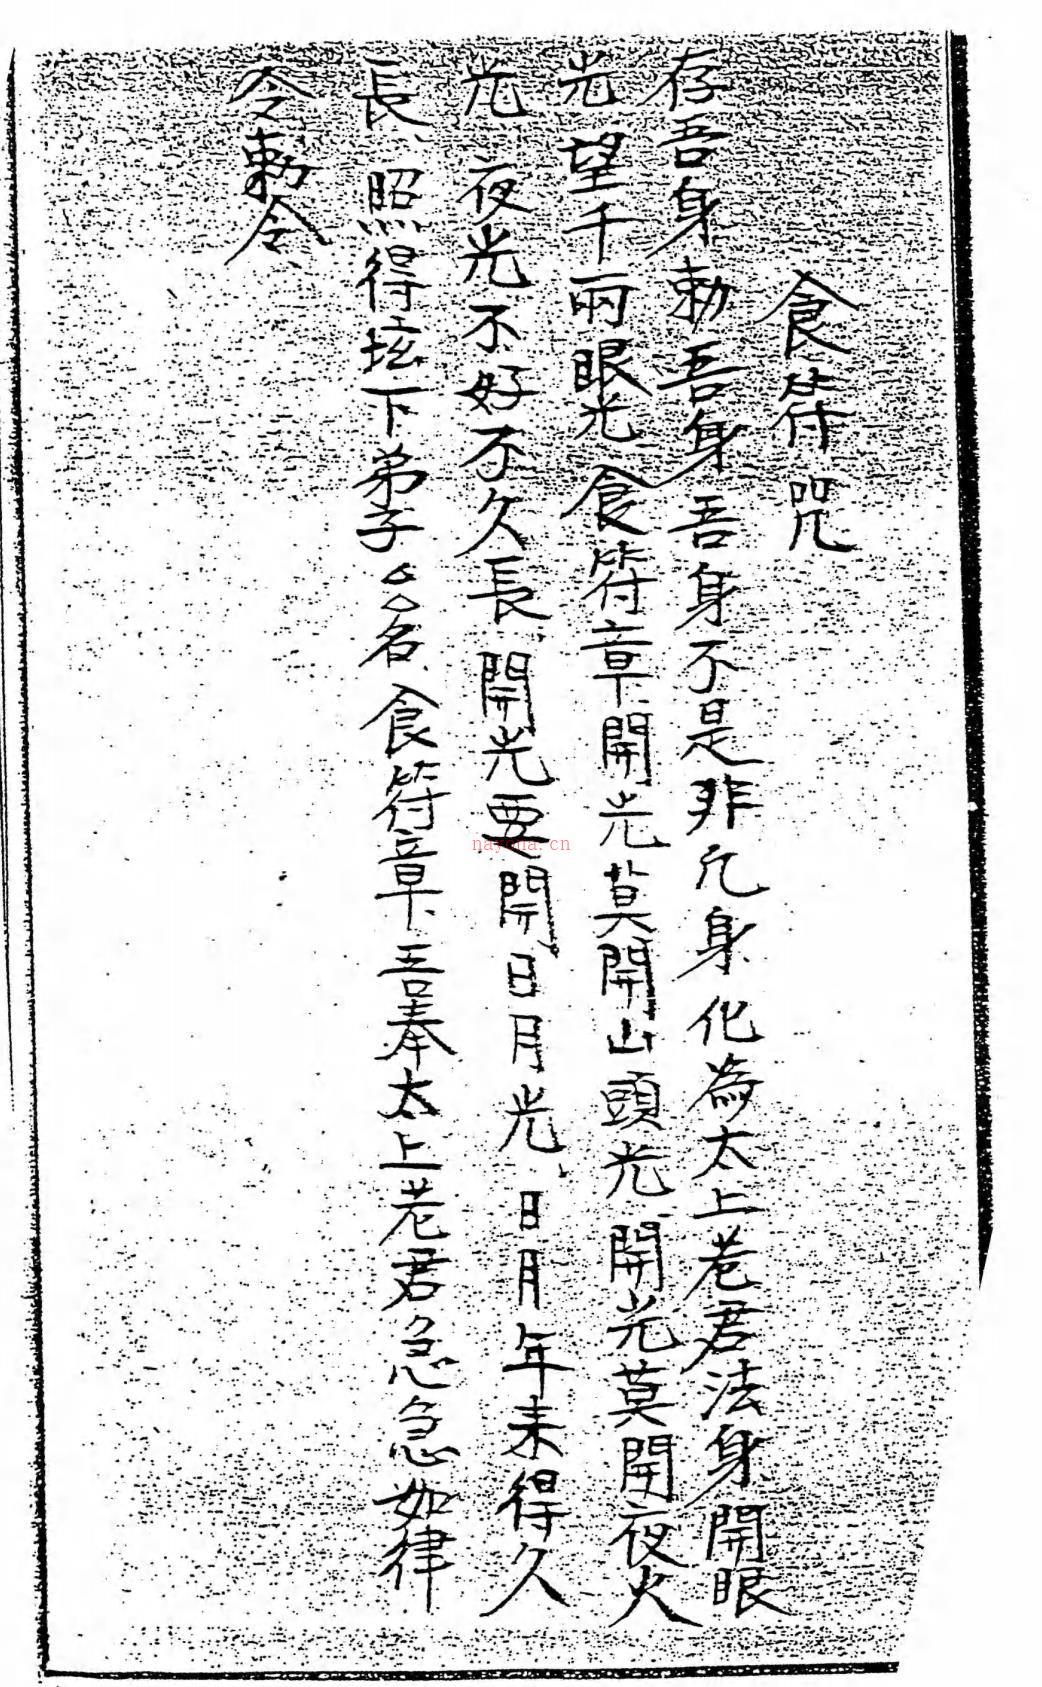 食符咒
存吾身勅吾身吾身不是非凡身化為太上老君法身開眼
光望千兩眼光食符章開光莫開山頭光開光莫開夜火
光夜光不好不久長開光要開日月光日月年未得久
長照得坛下弟子厶厶名食符章吾奉太上老君急急如律
令勅令
nayona.cn